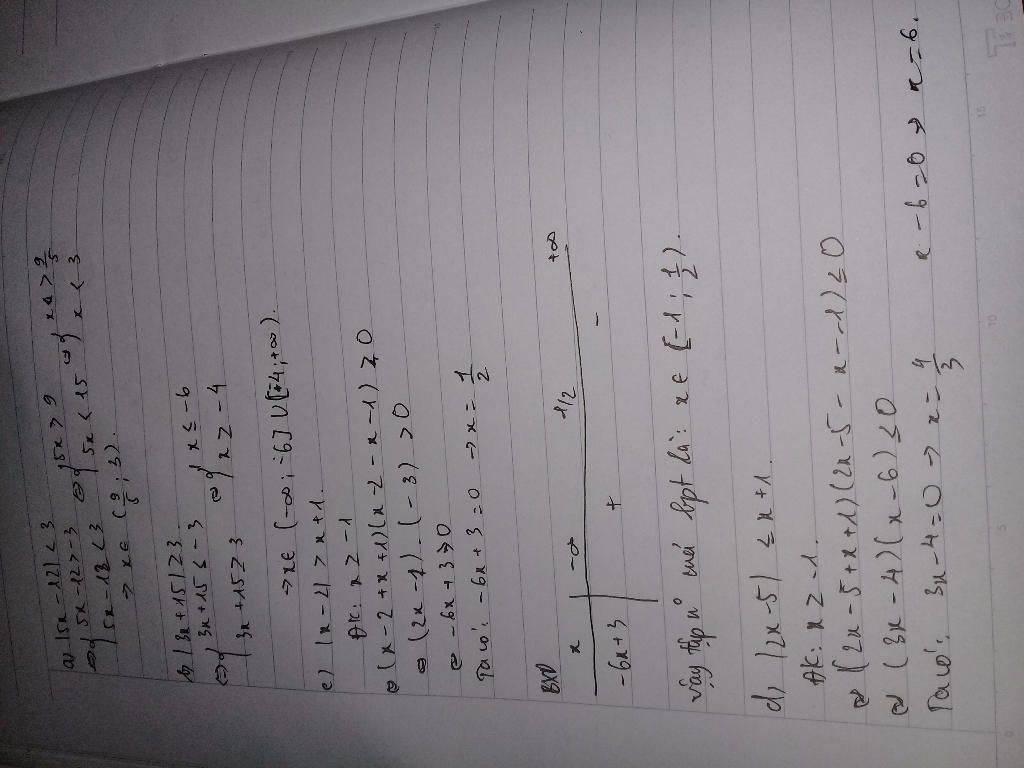 a) |5x-12| < 3
⇔ { 5x-12 > -3 ⇔ { 5x > 9 ⇔ { x > 9/5
{ 5x-12 < 3 { 5x < 15 { x < 3
→ x ∈ (9/5; 3).
b) |3x+15| ≥ 3
⇔ { 3x+15 ≤ -3 ⇔ { x ≤ -6
{ 3x+15 ≥ 3 { x ≥ -4
→ x ∈ (-∞; -6] ∪ [-4; +∞).
c) |x-2| > x+1.
ĐK: x ≥ -1
⇔ (x-2+x+1)(x-2-x-1) > 0
⇔ (2x-1).(-3) > 0
⇔ -6x+3 > 0
Ta có: -6x+3=0 → x = 1/2
BXD
x -∞ +1/2 +∞
-6x+3 + -
Vậy tập n° của bpt là: x ∈ [-1; 1/2).
d, |2x-5| ≤ x+1.
ĐK: x ≥ -1.
⇔ (2x-5+x+1)(2x-5-x-1) ≤ 0
⇔ (3x-4)(x-6) ≤ 0
Ta có: 3x-4=0 → x = 4/3 x-6=0 → x=6.